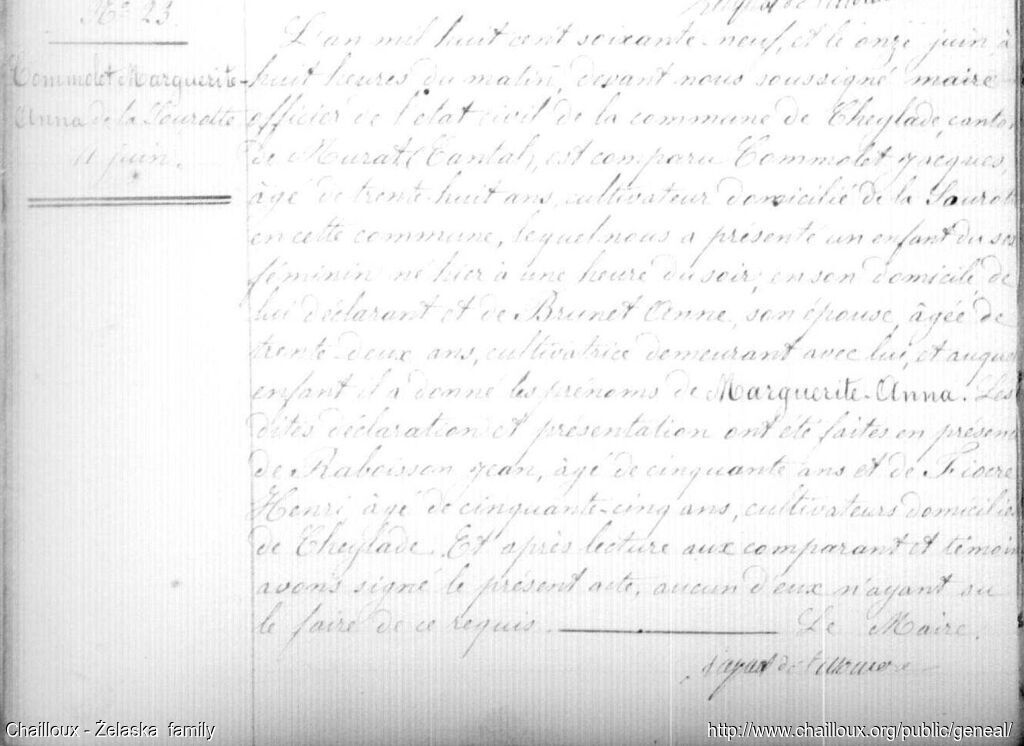 N° 23
Commolet Marguerite-
Anna de la Sourotte
11 juin.
L'an mil huit cent soixante-neuf, et le onze juin à
huit heures du matin, devant nous soussigné maire
officier de l'état civil de la commune de Cheylade, canton
de Murat (Cantal), est comparu Commolet Jacques,
âgé de trente-huit ans, cultivateur domicilié de la Sourotte
en cette commune, lequel nous a présenté un enfant du sexe
féminin né hier à une heure du soir, en son domicile de
lui déclarant et de Brunet Anne, son épouse, âgée de
trente-deux ans, cultivatrice demeurant avec lui, et auquel
enfant il a donné les prénoms de Marguerite-Anna. Les
dites déclaration et présentation ont été faites en présence
de Raboisson Jean, âgé de cinquante ans et de Fiocre
Henri âgé de cinquante-cinq ans, cultivateurs domiciliés
de Cheylade. Et après lecture aux comparant et témoins
avons signé le présent acte, aucun d'eux n'ayant su
le faire de ce requis. Le Maire.
Chailloux - Żelaska family
http://www.chailloux.org/public/geneal/